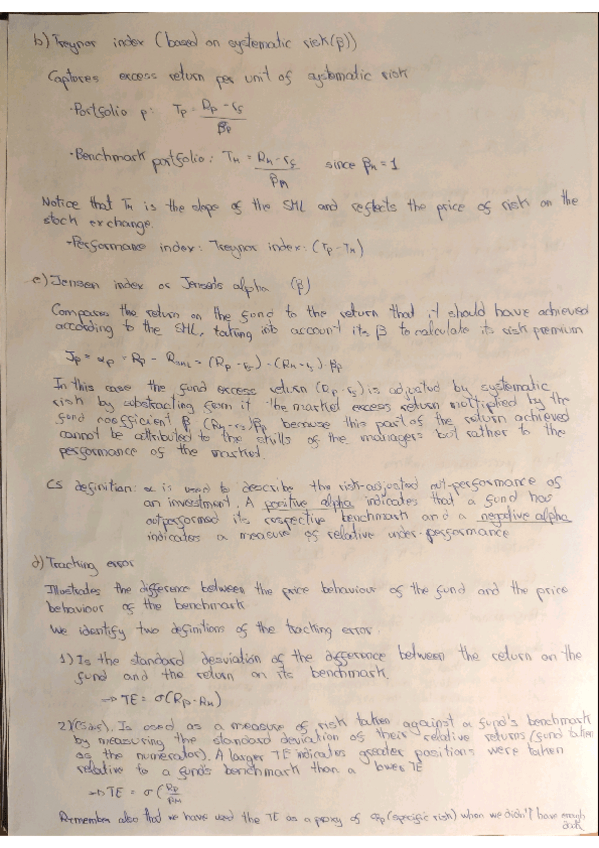 b) Treynor index (based on systematic risk (β))
Captures excess return per unit of systematic risk
·Portfolio p: Tp = Rp - rf / βp
·Benchmark portfolio: TM = RM - rf / βM since βM = 1
Notice that TM is the slope of the SML and reflects the price of risk on the
stock exchange.
·Performance index: Treynor index: (Tp - TM)
c) Jensen index or Jensen's alpha (β)
Compares the return on the fund to the return that it should have achieved
according to the SML, taking into account its β to calculate its risk premium
Jp = αp = Rp - RSML = (Rp - rf) - (RM - rf) · βp
In this case the fund excess return (Rp - rf) is adjusted by systematic
risk by substracting form it the market excess return multiplied by the
fund coefficient β (RM - rf)βp because this part of the return achieved
cannot be attributed to the skills of the managers but rather to the
performance of the market.
CS definition: α is used to describe the risk-adjusted out-performance of
an investment. A positive alpha indicates that a fund has
outperformed its respective benchmark and a negative alpha
indicates a measure of relative under-performance
d) Tracking error
Illustrates the difference between the price behaviour of the fund and the price
behaviour of the benchmark
We identify two definitions of the tracking error.
1) Is the standard desviation of the difference between the return on the
fund and the return on its benchmark.
→ TE = σ(Rp - RM)
2) Is used as a measure of risk taken against a fund's benchmark
by measuring the standard deviation of their relative returns (fund taken
as the numerator). A larger TE indicates greater positions were taken
relative to a fund's benchmark than a lower TE
→ TE = σ(Rp / RM
Remember also that we have used the TE as a proxy of (specific risk) when we didn't have enough
data